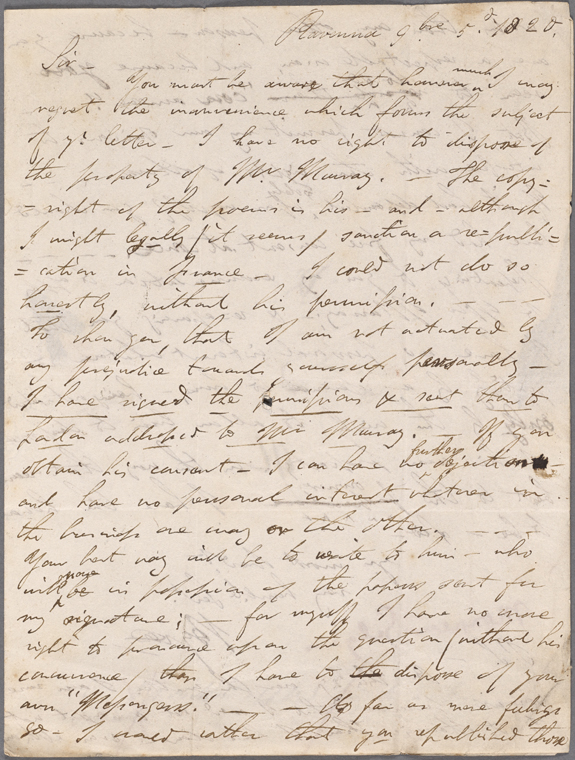 Ravenna 9bre 5.d 1820.
Sir –
You must be aware that however much I may
regret the inconvenience which forms the subject
of yr. letter – I have no right to dispose of
the property of Mr. Murray. – The copy=
=right of the poems is his – and – although
I might legally (it seems) sanction a re=publi=
=cation in France – I could not do so
honestly, without his permission. – – –
To shew you, that I am not actuated by
any prejudice towards yourself personally –
I have signed the permissions & sent them to
London addressed to Mr Murray. If you
obtain his consent – I can have no further objection –
and have no personal interest whatever in
the business one way or the other. – – –
Your best way will be to write to him – who
will now be in possession of the papers sent for
my signature; – for myself I have no more
right to pronounce upon the question (without his
concurrence) than I have to the dispose of your
own "Messengers." – – As far as mere feelings
go – I would rather that you republished those